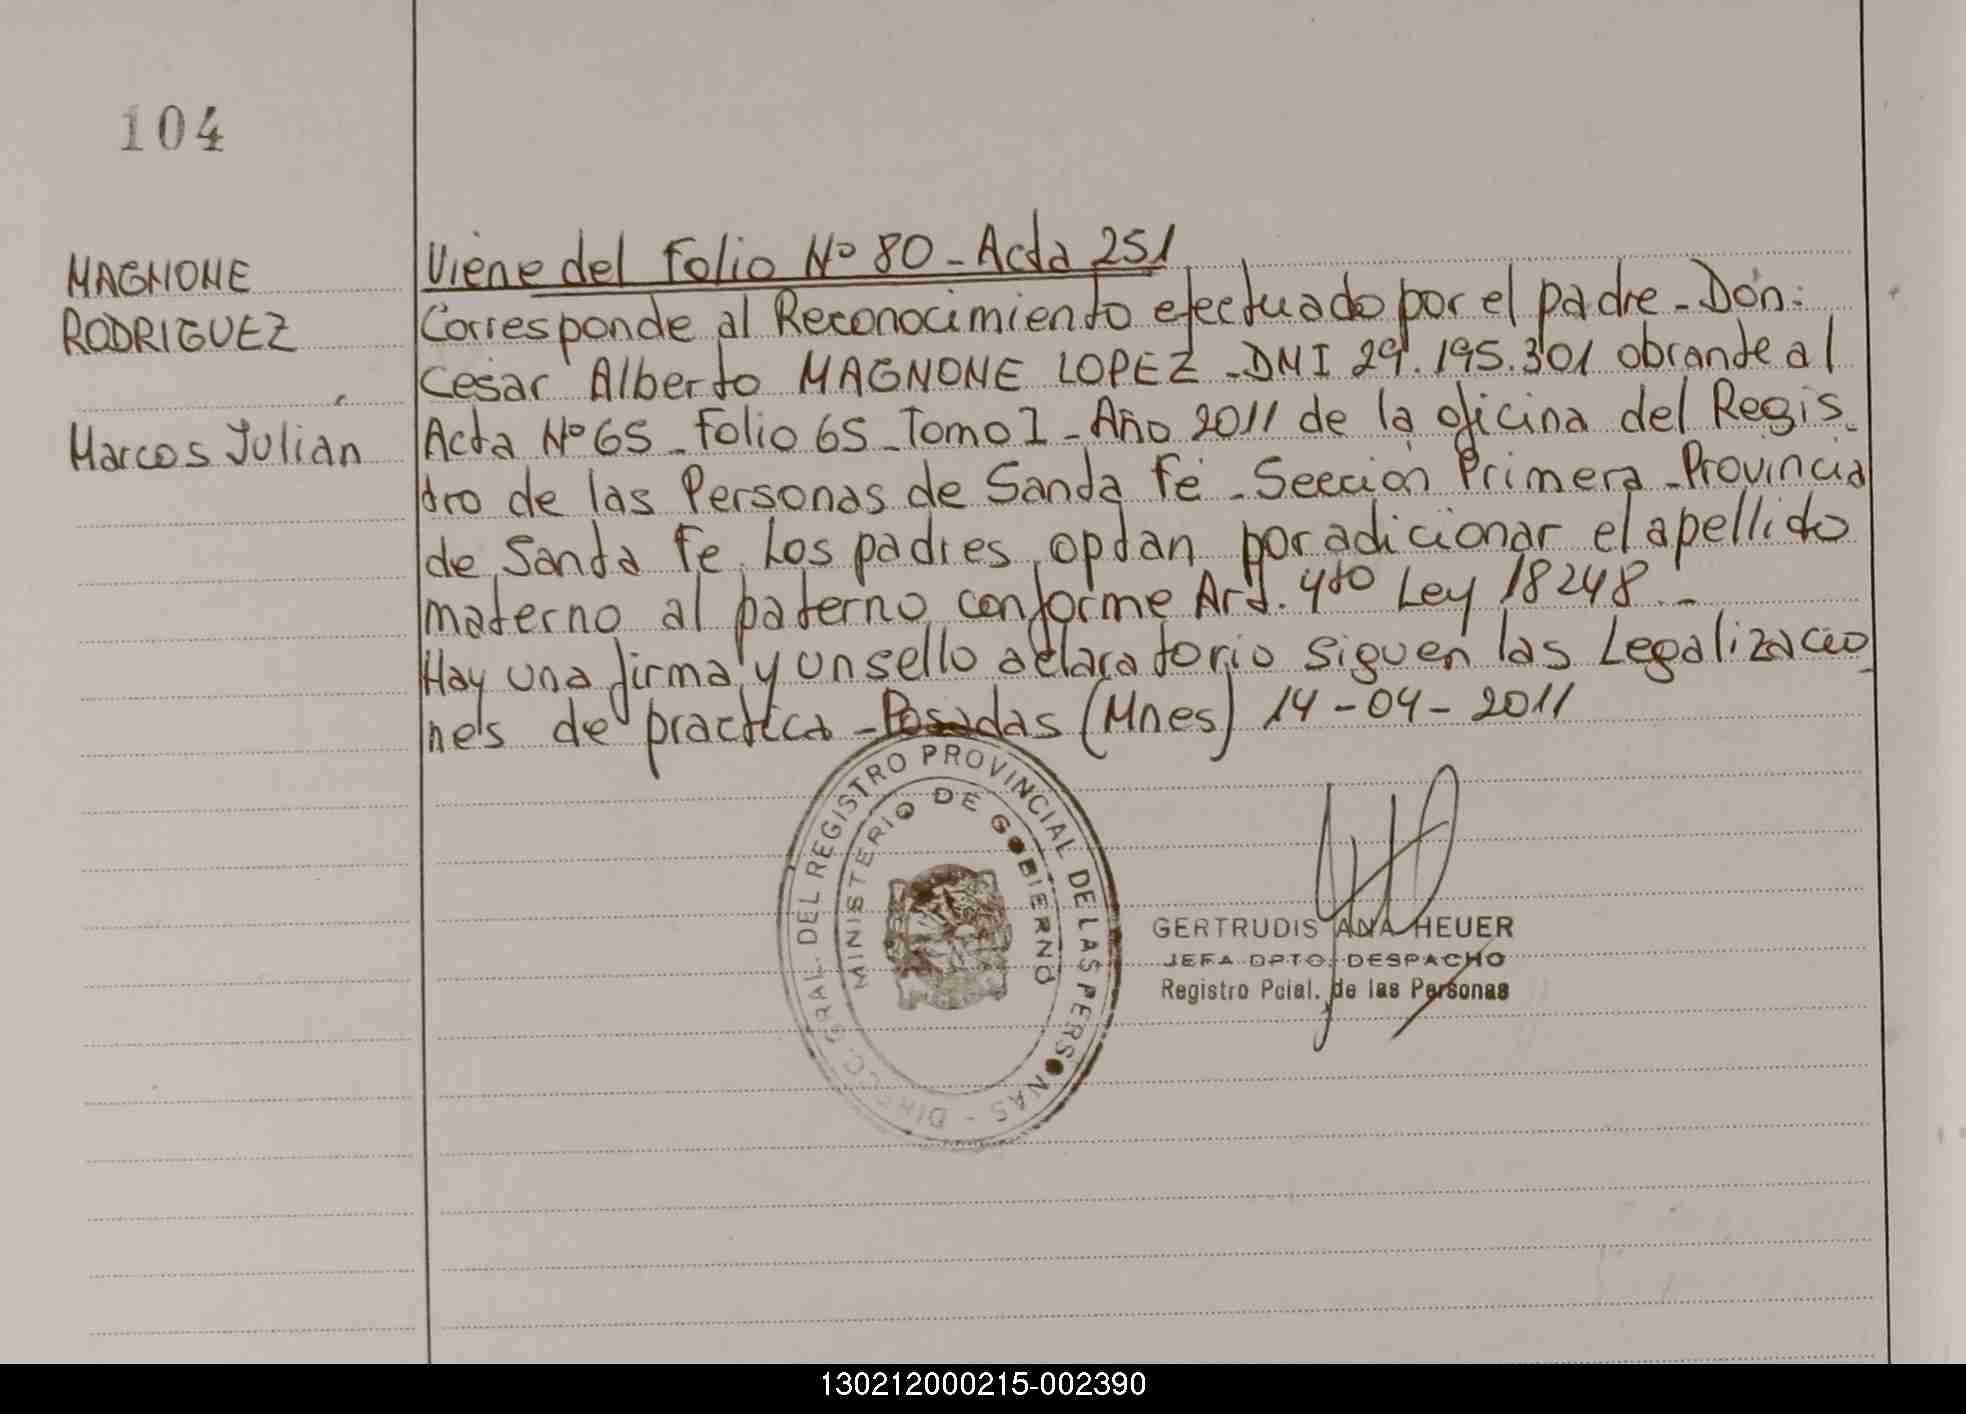 104
MAGNONE
RODRIGUEZ
Marcos Julian
Viene del folio Nº 80 - Acta 251
Corresponde al Reconocimiento efectuado por el padre - Don:
Cesar Alberto MAGNONE LOPEZ - DNI 29.195.301 obrante al
Acta Nº 65 - Folio 65 - Tomo I - Año 2011 de la oficina del Regis-
tro de las Personas de Santa Fe - Sección Primera - Provincia
de Santa Fe. Los padres optan por adicionar el apellido
materno al paterno conforme Art. 4to Ley 18248. -
Hay una firma y un sello aclaratorio siguen las Legalizacio
nes de practica - Posadas (Mnes) 14-04-2011
DIRECC. GRAL. DEL REGISTRO PROVINCIAL DE LAS PERSONAS -
MINISTERIO DE GOBIERNO
GERTRUDIS ANA HEUER
JEFA DPTO. DESPACHO
Registro Pcial. de las Personas
130212000215-002390